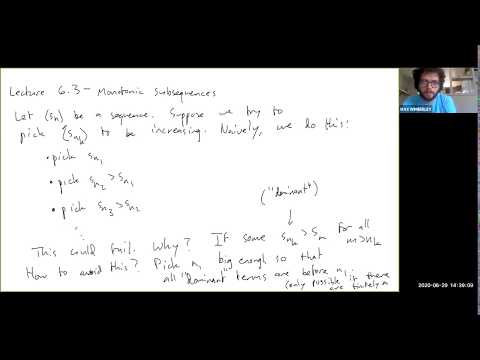 Lecture 6.3 - Monotonic Subsequences
Let (sn) be a sequence. Suppose we try to
pick (snk) to be increasing. Naively, we do this:
• pick sn1
• pick sn2 > sn1
• pick sn3 > sn2
⋮
("dominant")
↓
This could fail. Why? If some snk > sm for all
m > nk
How to avoid this? Pick n1 big enough so that
all "dominant" terms are before n1
(only possible if there
are finitely
MAX WIMBERLEY
2020-06-29 14:39:09